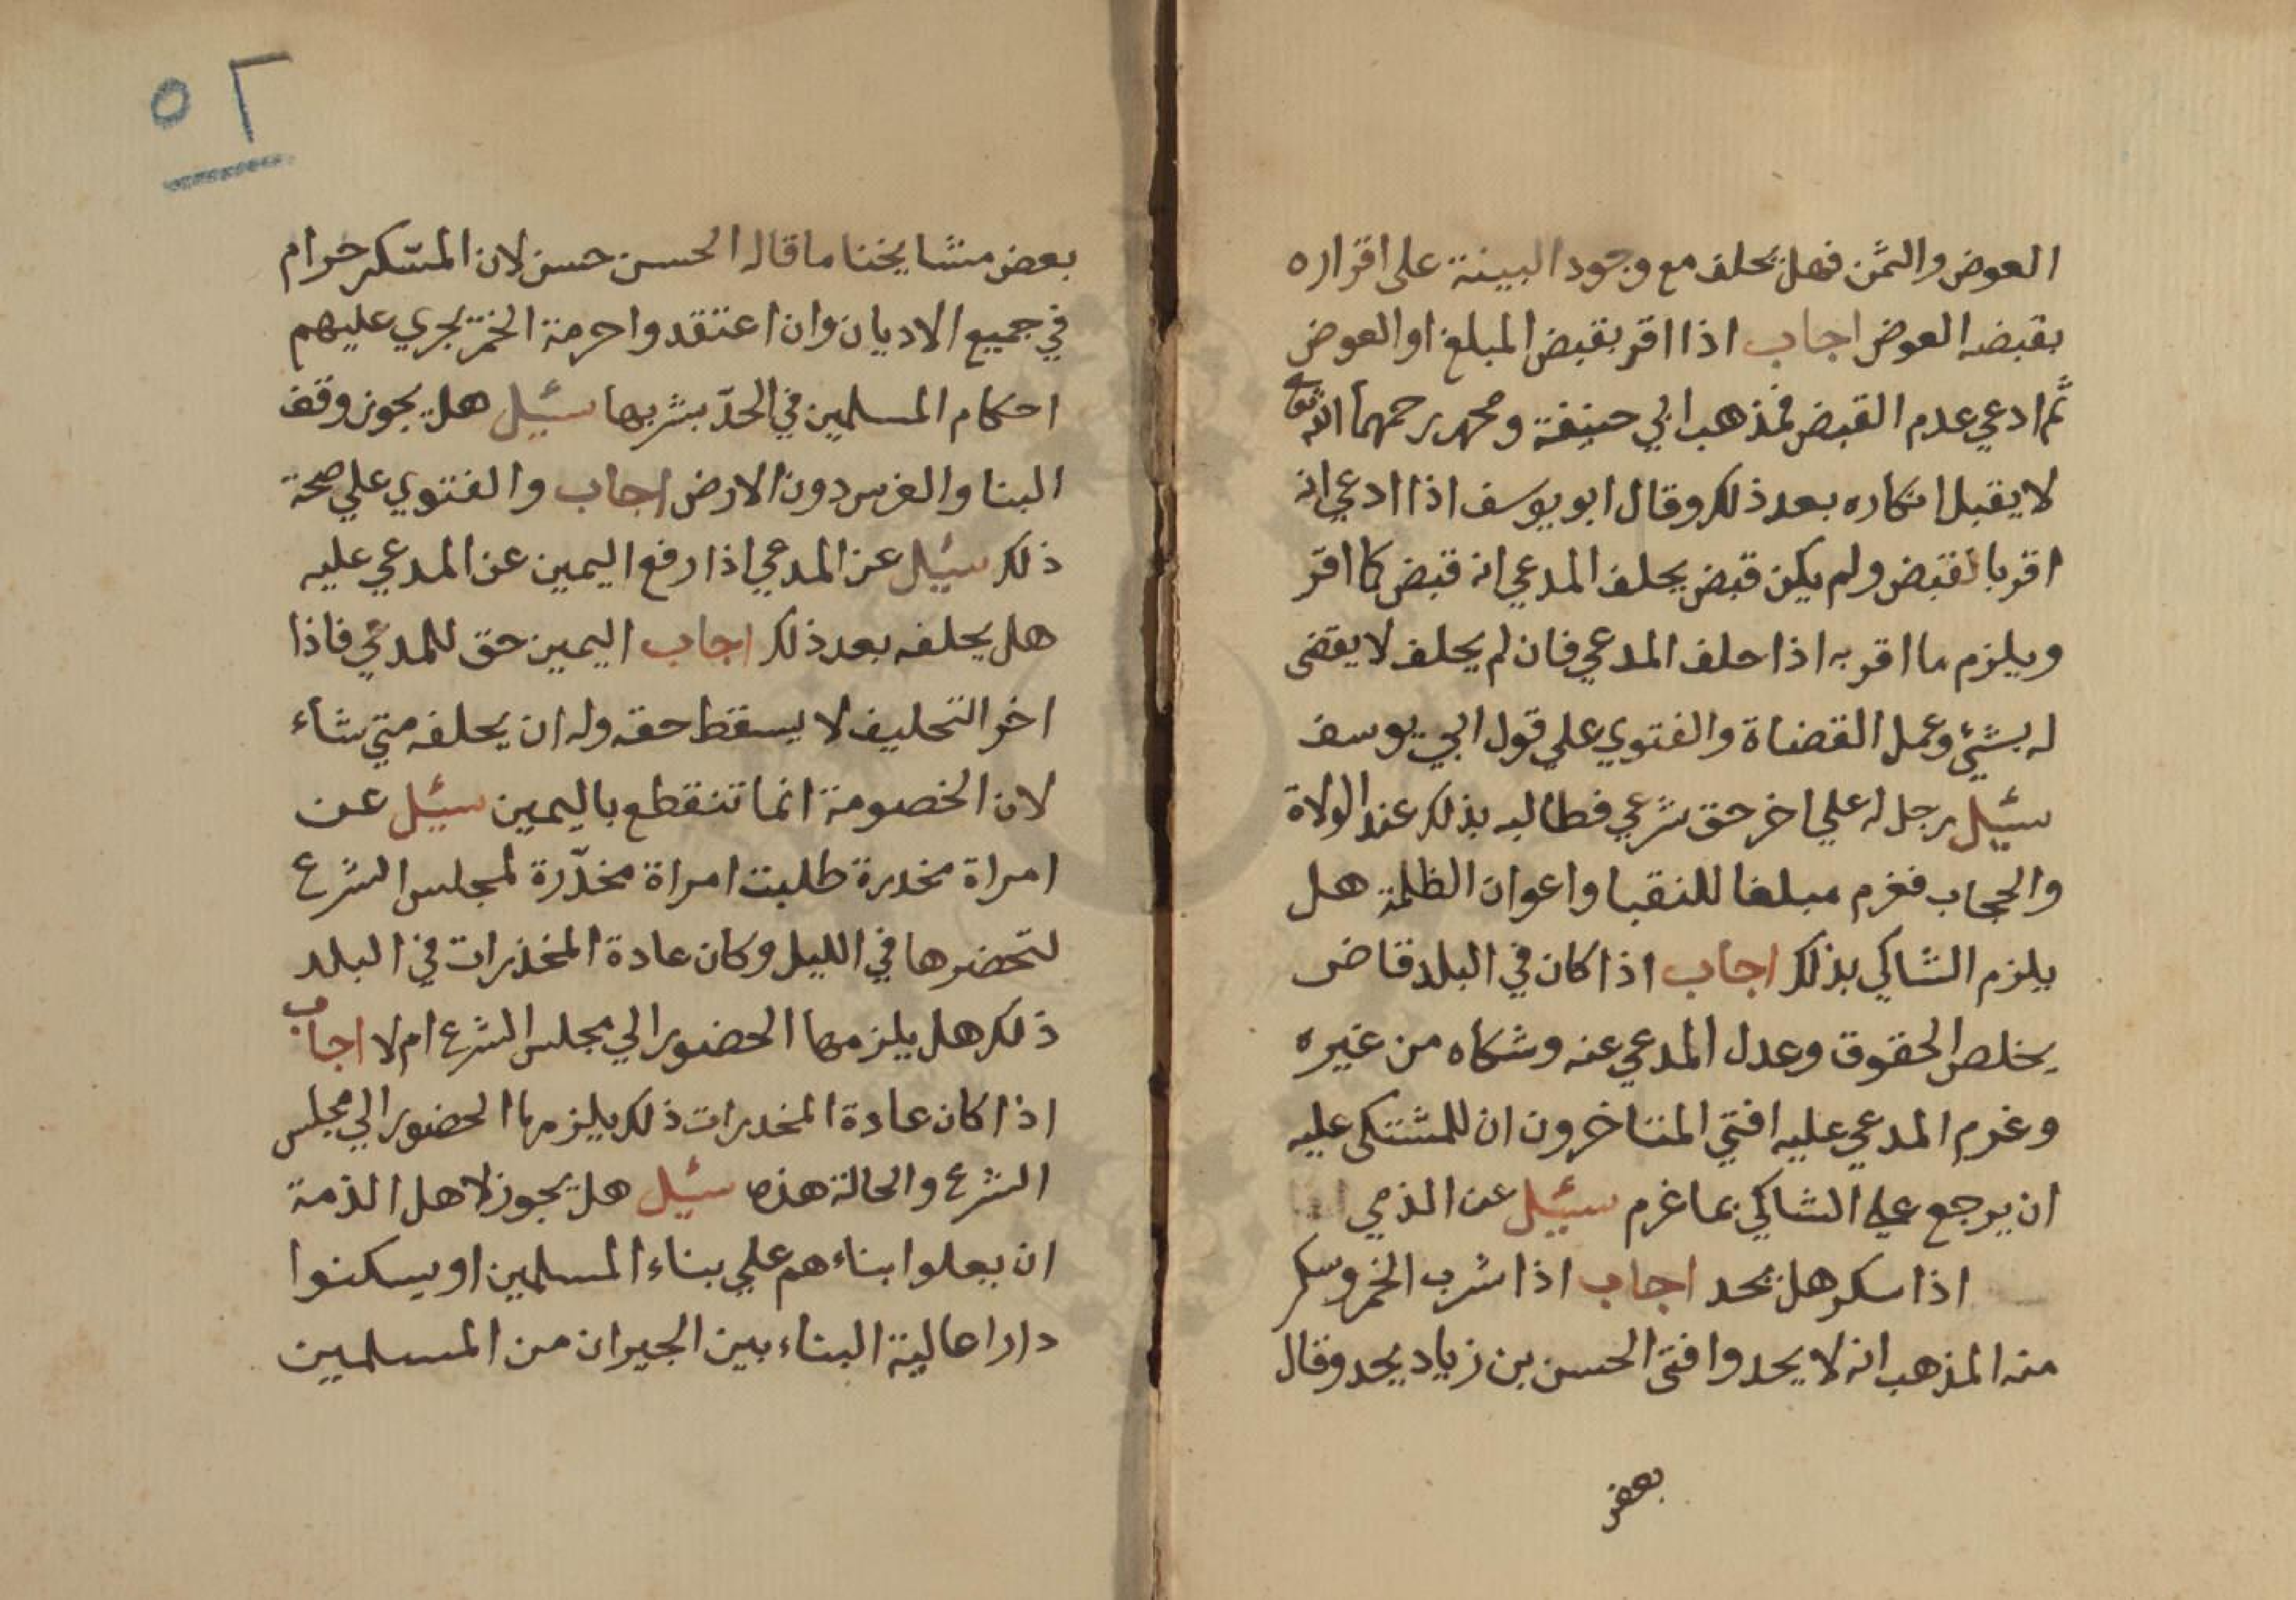 العوض والثمن فهل يحلف مع وجود البينة على اقراره
بقبضه العوض اجاب اذا اقر بقبض المبلغ او العوض
ثم ادعي عدم القبض فمذهب ابي حنيفة ومحمد رحمهما الله تعالى
لا يقبل انكاره بعد ذلك وقال ابو يوسف اذا ادعي انه
اقر بالقبض ولم يكن قبض يحلف المدعي انه قبض كما اقر
ويلزم ما اقر به اذا حلف المدعي فان لم يحلف لا يقضى
له بشيء وعمل القضاة والفتوي علي قول ابي يوسف
سئل رجل له علي اخر حق شرعي فطالبه بذلك عند الولاة
والحجاب فغرم مبلغا للنقبا واعوان الظلمة هل
يلزم الشاكي بذلك اجاب اذا كان في البلد قاض
يخلص الحقوق وعدل المدعي عنه وشكاه من غيره
وغرم المدعي عليه افتي المتاخرون ان للمشتكى عليه
ان يرجع علي الشاكي بما غرم سئل عن الذمي
اذا سكر هل يحد اجاب اذا شرب الخمر وسكر
منه المذهب انه لا يحد وافتى الحسن بن زياد يحد وقال
بعض
٥٢
بعض مشايخنا ما قاله الحسن حسن لان المسكر حرام
في جميع الاديان وان اعتقدوا حرمة الخمر تجري عليهم
احكام المسلمين في الحدّ بشربها سئل هل يجوز وقف
البنا والغرس دون الارض اجاب والفتوي علي صحة
ذلك سئل عن المدعي اذا رفع اليمين عن المدعي عليه
هل يحلفه بعد ذلك اجاب اليمين حق للمدعي فاذا
اخر التحليف لا يسقط حقه وله ان يحلفه متي شاء
لان الخصومة انما تنقطع باليمين سئل عن
امراة مخدرة طلبت امراة مخدّرة لمجلس الشرع
لتحضرها في الليل وكان عادة المخذرات في البلد
ذلك هل يلزمها الحضور الي مجلس الشرع ام لا اجاب
اذا كان عادة المخدرات ذلك يلزمها الحضور الي مجلس
الشرع والحالة هذه سئل هل يجوز لاهل الذمة
ان يعلوا بناءهم علي بناء المسلمين او يسكنوا
دارا عالية البناء بين الجيران من المسلمين